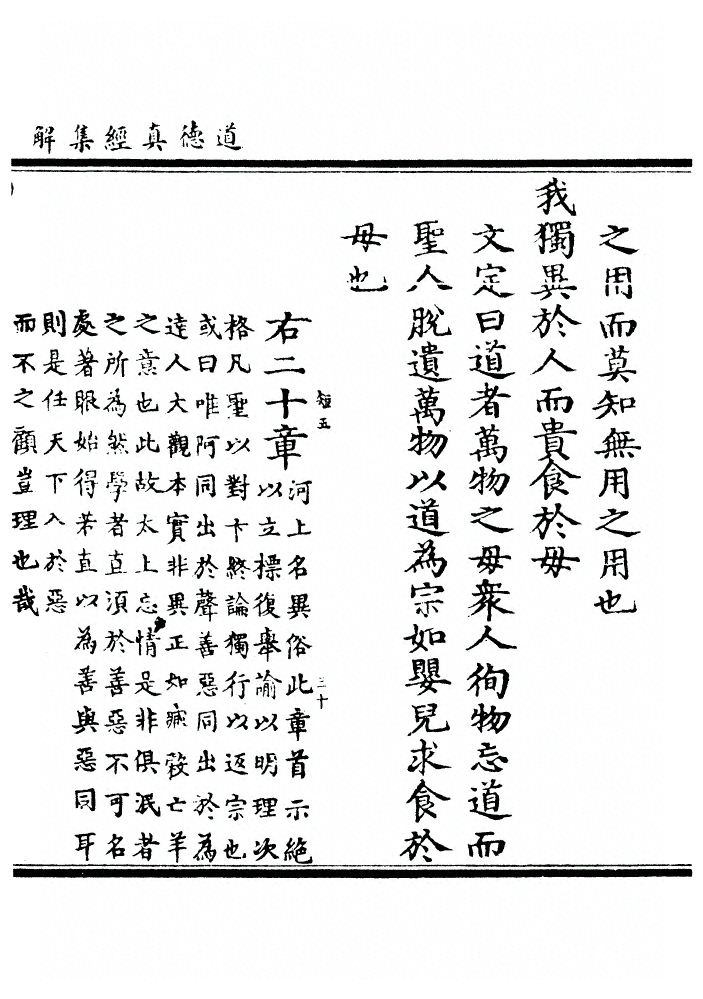 道德真經集解
之用而莫知無用之用也
我獨異於人而貴食於母
文定曰道者萬物之母衆人徇物忘道而
聖人脫遺萬物以道為宗如嬰兒求食於
母也
短五
三十
右二十章河上名異俗此章首示絶
以立標復舉諭以明理次
格凡聖以對卞終論獨行以返宗也
或曰唯阿同出於聲善惡同出於為
達人大觀本實非異正如臧穀亡羊
之意也此故太上忘情是非俱泯者
之所為然學者直須於善惡不可名
處著眼始得若直以為善與惡同耳
則是任天下入於惡
而不之顧豈理也哉